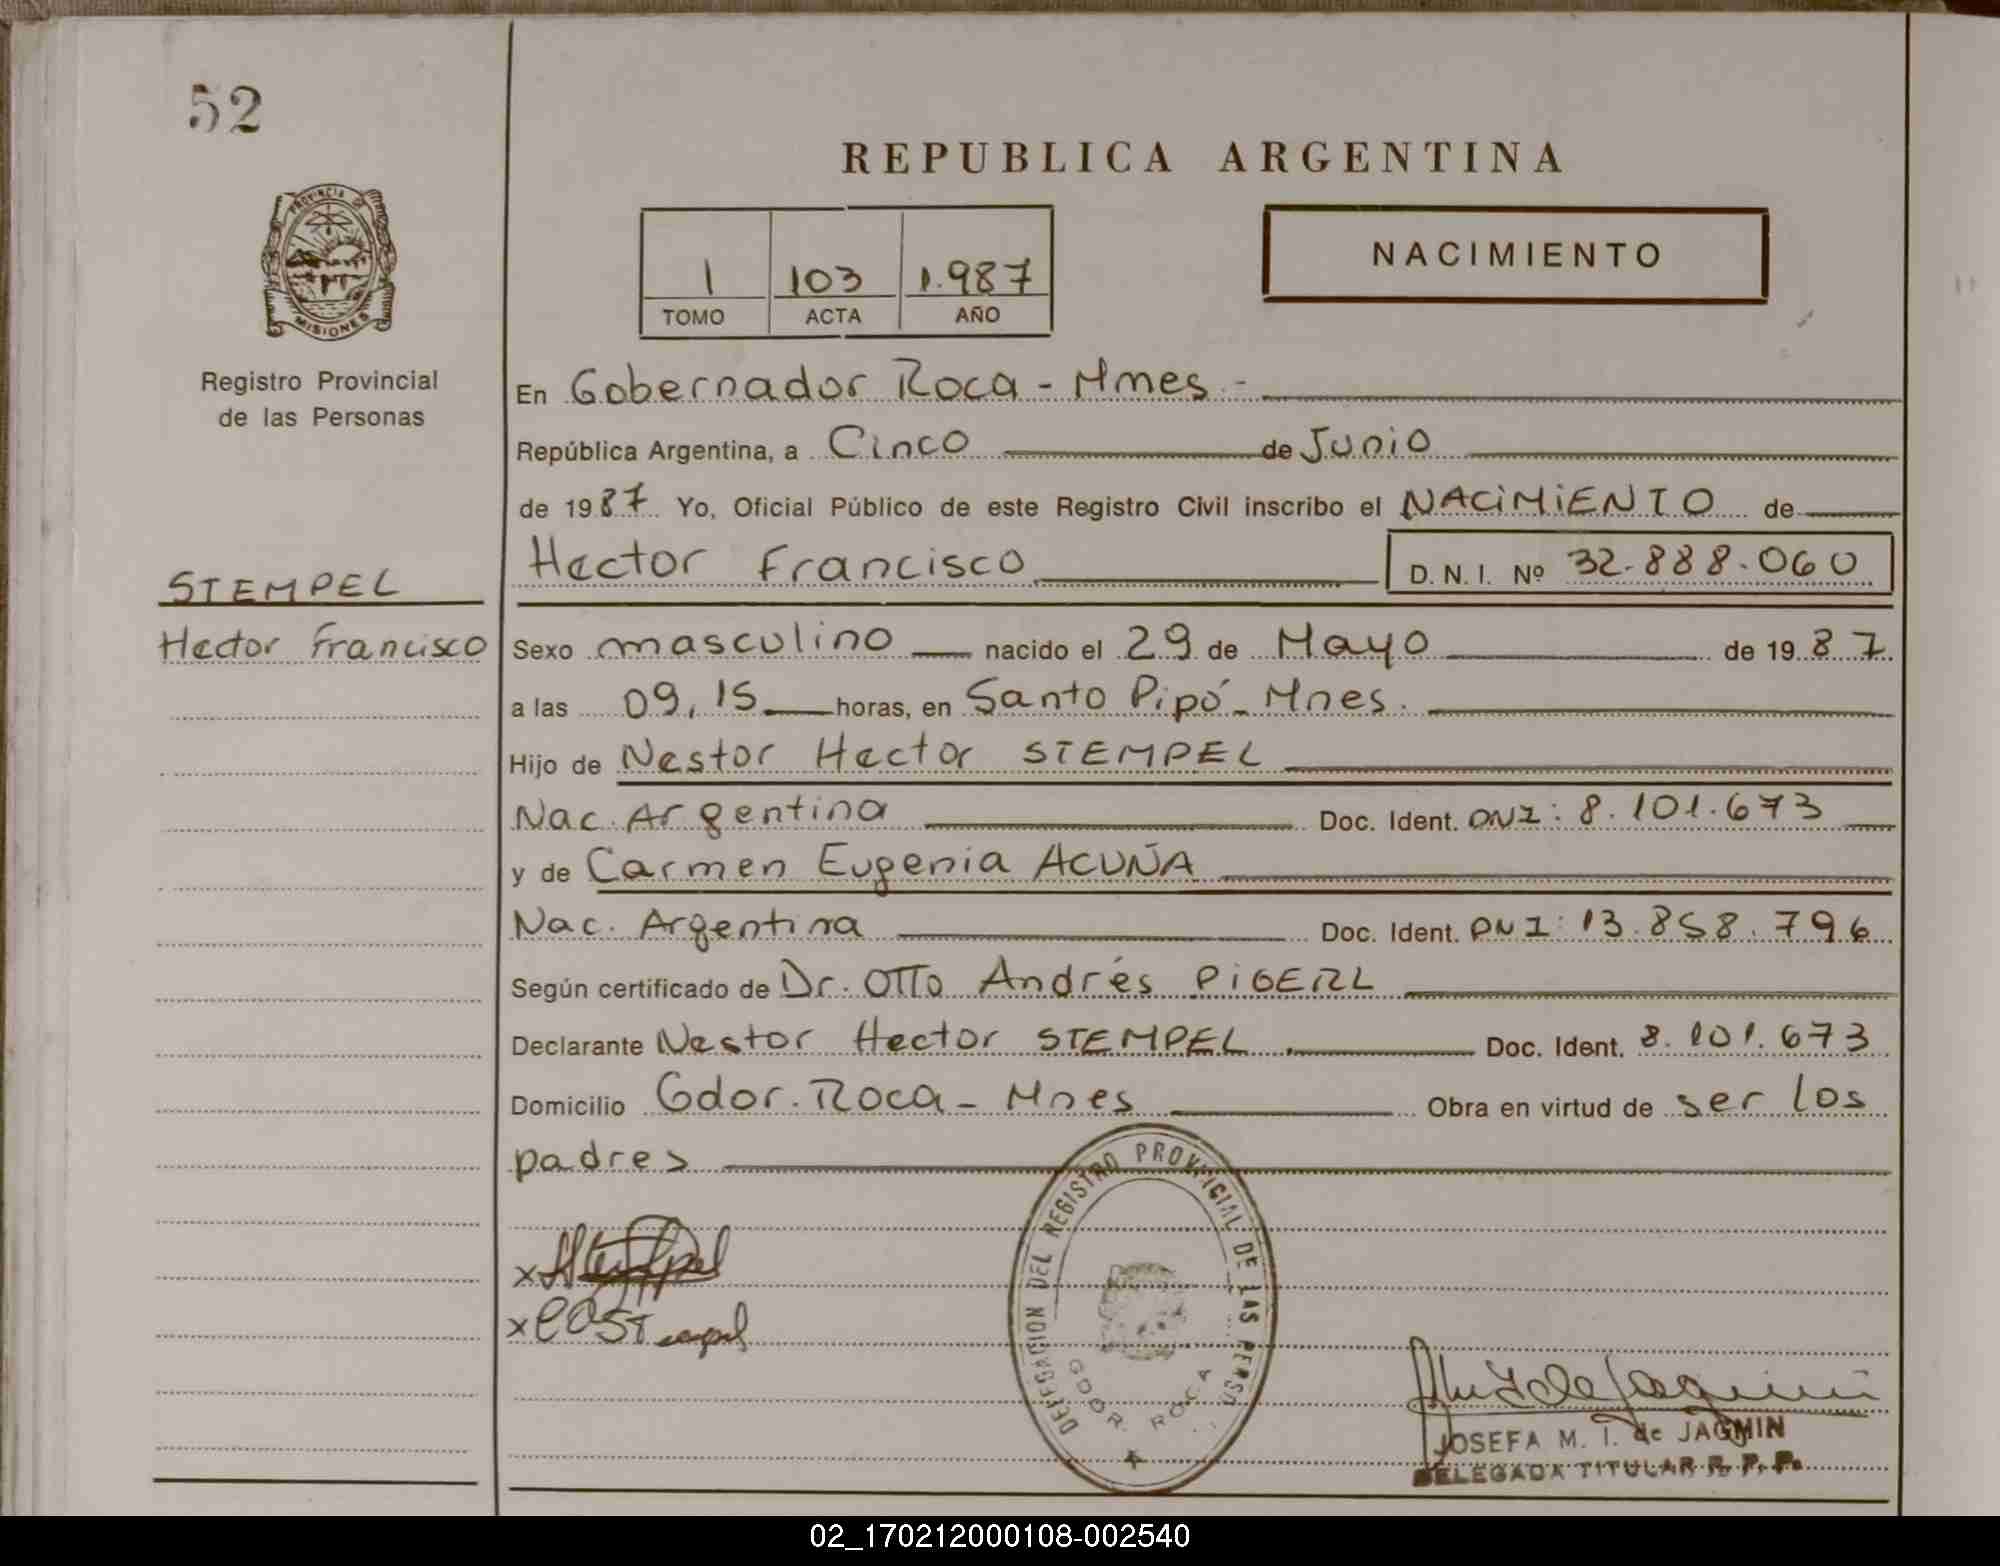 52
PROVINCIA DE
MISIONES
Registro Provincial
de las Personas
STEMPEL
Hector Francisco
REPUBLICA ARGENTINA
1 103 1.987
TOMO ACTA AÑO
NACIMIENTO
En Gobernador Roca - Mnes -
República Argentina, a Cinco de Junio
de 1987 Yo, Oficial Público de este Registro Civil inscribo el NACIMIENTO de
Hector Francisco D. N. I. Nº 32.888.060
Sexo masculino nacido el 29 de Mayo de 1987
a las 09,15 horas, en Santo Pipó - Mnes.
Hijo de Nestor Hector STEMPEL
Nac. Argentina Doc. Ident. DNI: 8.101.673
y de Carmen Eugenia ACUÑA
Nac. Argentina Doc. Ident. DNI: 13.858.796
Según certificado de Dr. OTTO Andrés PIGERL
Declarante Nestor Hector STEMPEL Doc. Ident. 8.101.673
Domicilio Gdor. Roca - Mnes Obra en virtud de ser los
padres
DELEGACION DEL REGISTRO PROVINCIAL DE LAS PERSO
GDOR. ROCA
JOSEFA M. I. de JAGMIN
DELEGADA TITULAR R. P. P.
02_170212000108-002540